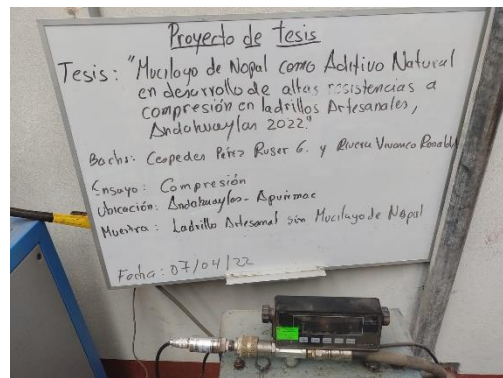 Proyecto de tesis
Tesis: "Mucilago de Nopal como Aditivo Natural
en desarrollo de altas resistencias a
compresión en ladrillos Artesanales,
Andahuaylas 2022"
Bachs: Cespedes Pérez Ruser G. y Rivera Vivanco Ronald
Ensayo: Compresión
Ubicación: Andahuaylas - Apurimac
Muestra: Ladrillo Artesanal sin Mucilago de Nopal
Fecha: 07/04/22